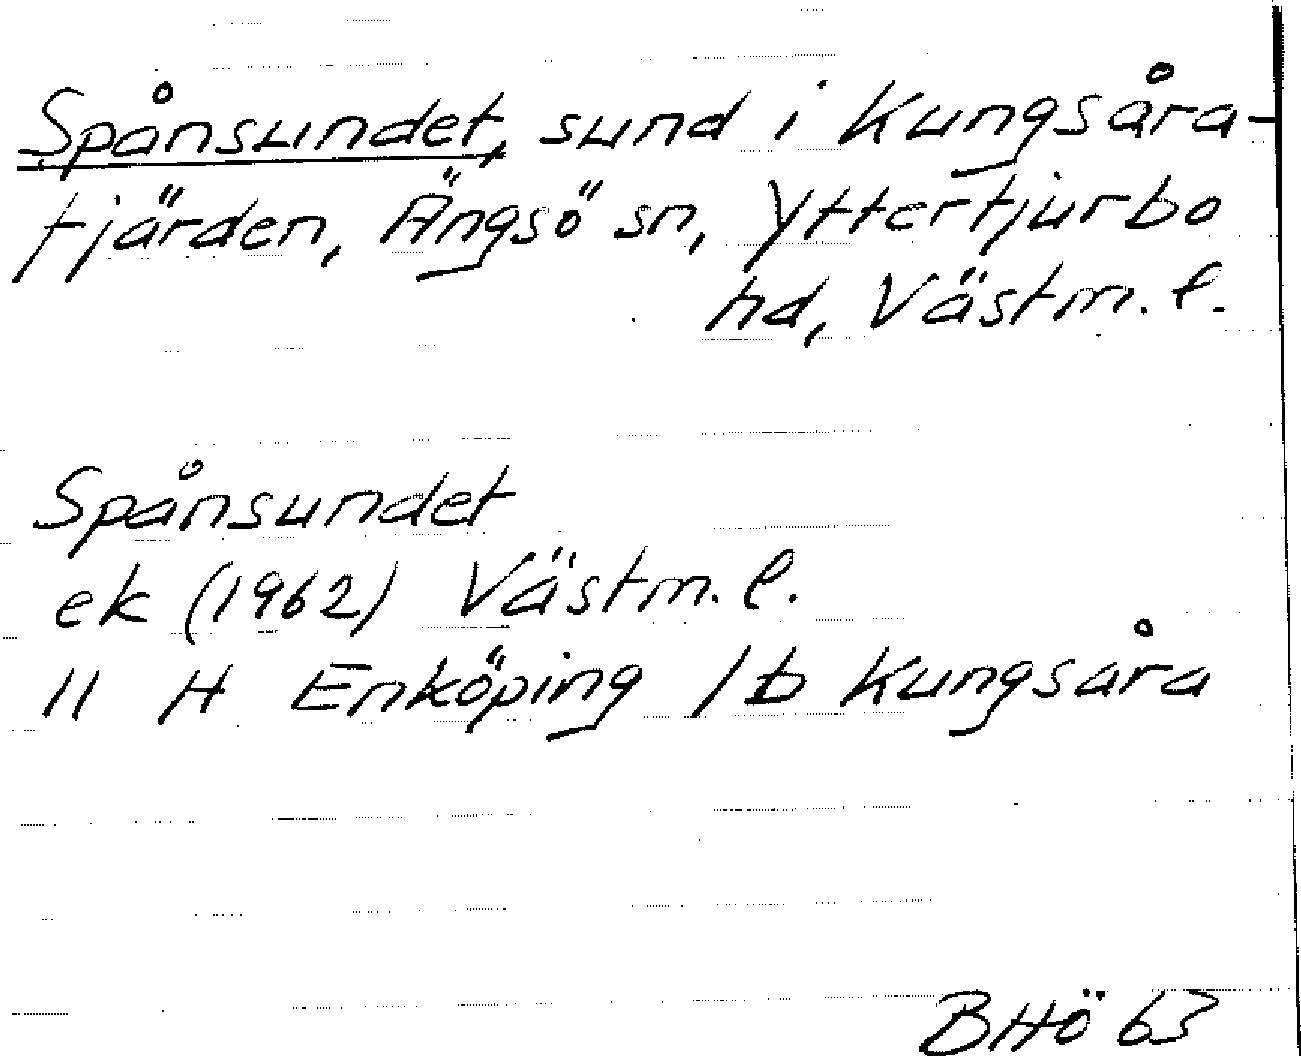 Spånsundet, sund i Kungsåra-
fjärden, Ängsö sn, Yttertjurbo
hd, Västm. l.
Spånsundet
ek (1962) Västm. l.
11 H Enköping 1b Kungsåra
BHö 63